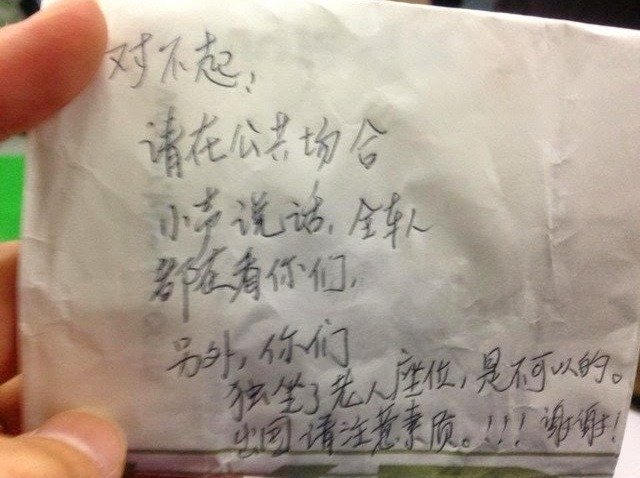 对不起,
请在公共场合
小声说话,全车人
都在看你们,
另外,你们
独坐了老人座位,是不可以的。
出国请注意素质。!!!谢谢!